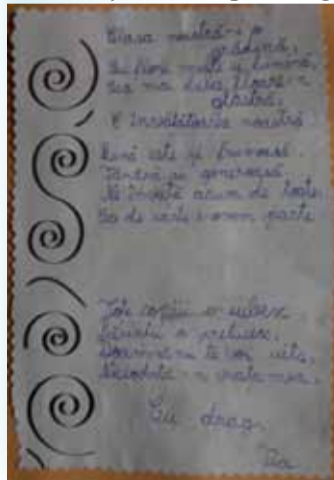 Clasa noastră-i o
grădină,
Cu flori multe și lumină,
Cea mai floare-n
glastră,
E învățătoarea noastră.
Bună este și frumoasă
Tânără și generoasă
Ne învață acum de toate
Să de carte avem parte
Toți copiii o iubesc,
Părinții o prețuiesc,
Doamnă nu te voi uita,
Niciodată-n viața mea.
Cu drag,